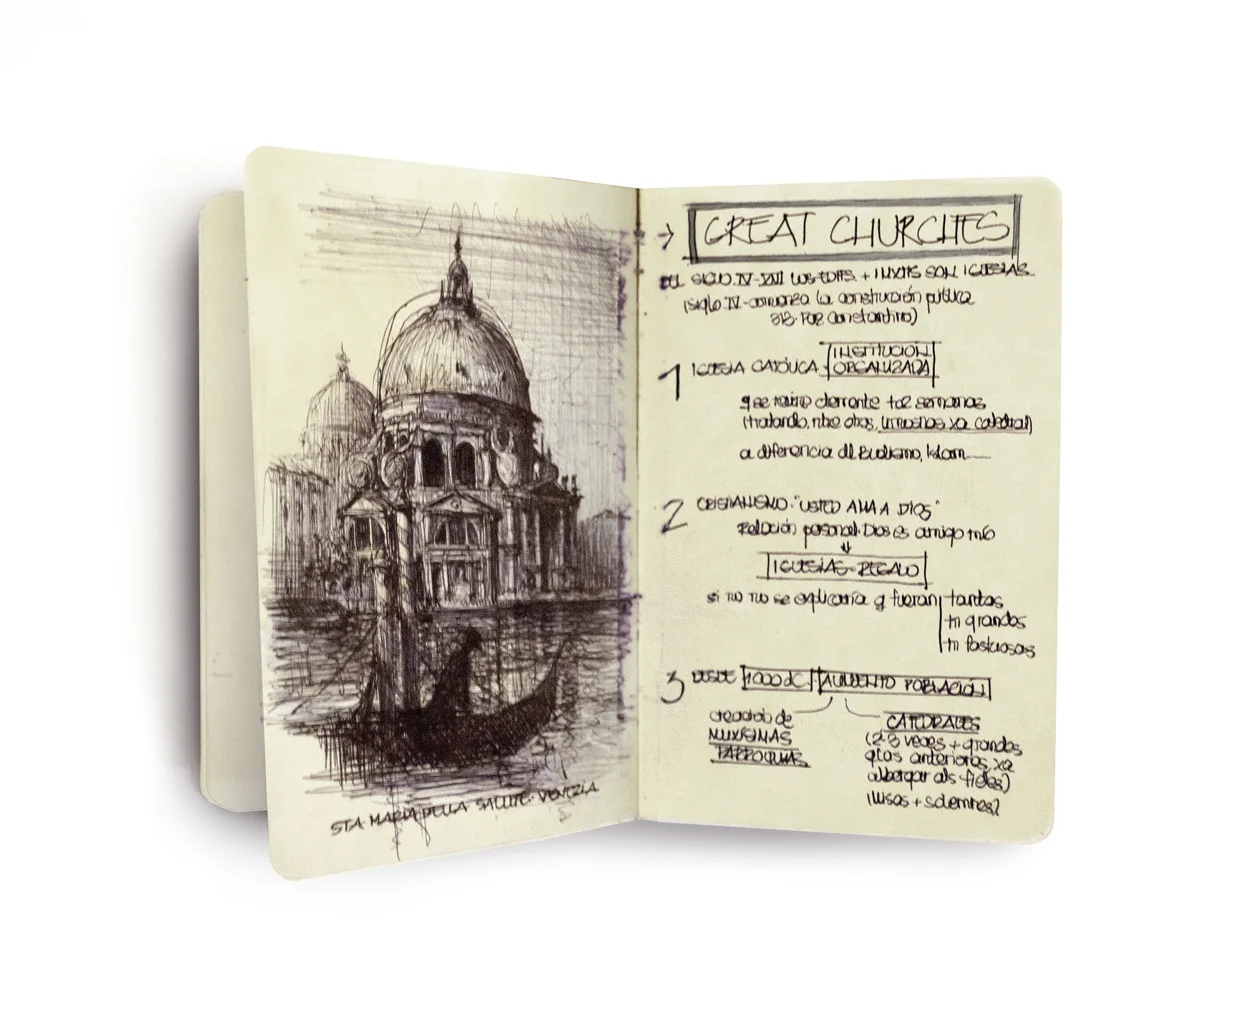 STA. MARIA DELLA SALUTE. VENEZIA
→ GREAT CHURCHES
DEL SIGLO IV-XVII LOS EDIFS. + IMXTS SON IGLESIAS.
(siglo IV-comienza la construcción pública
313. POR Constantino)
1 IGLESIA CATÓLICA INSTITUCIÓN
ORGANIZADA
q se reúne durante tds semanas
(tratando, ntre otros, limosnas xa catedral)
a diferencia dl Budismo, Islam
2 CRISTIANISMO. "USTED AMA A DIOS"
Relación personal. Dios es amigo mío
↓
IGLESIAS-REGALO
si no no se explicaría q fueran tantas
tn grandes
tn fastuosas
3 DESDE 1000 dC AUMENTO POBLACIÓN
creación de
MUXÍSIMAS
PARROQUIAS
CATEDRALES
(2-3 veces + grandes
q las anteriores xa
albergar a ls fieles)
(Misas + solemnes)